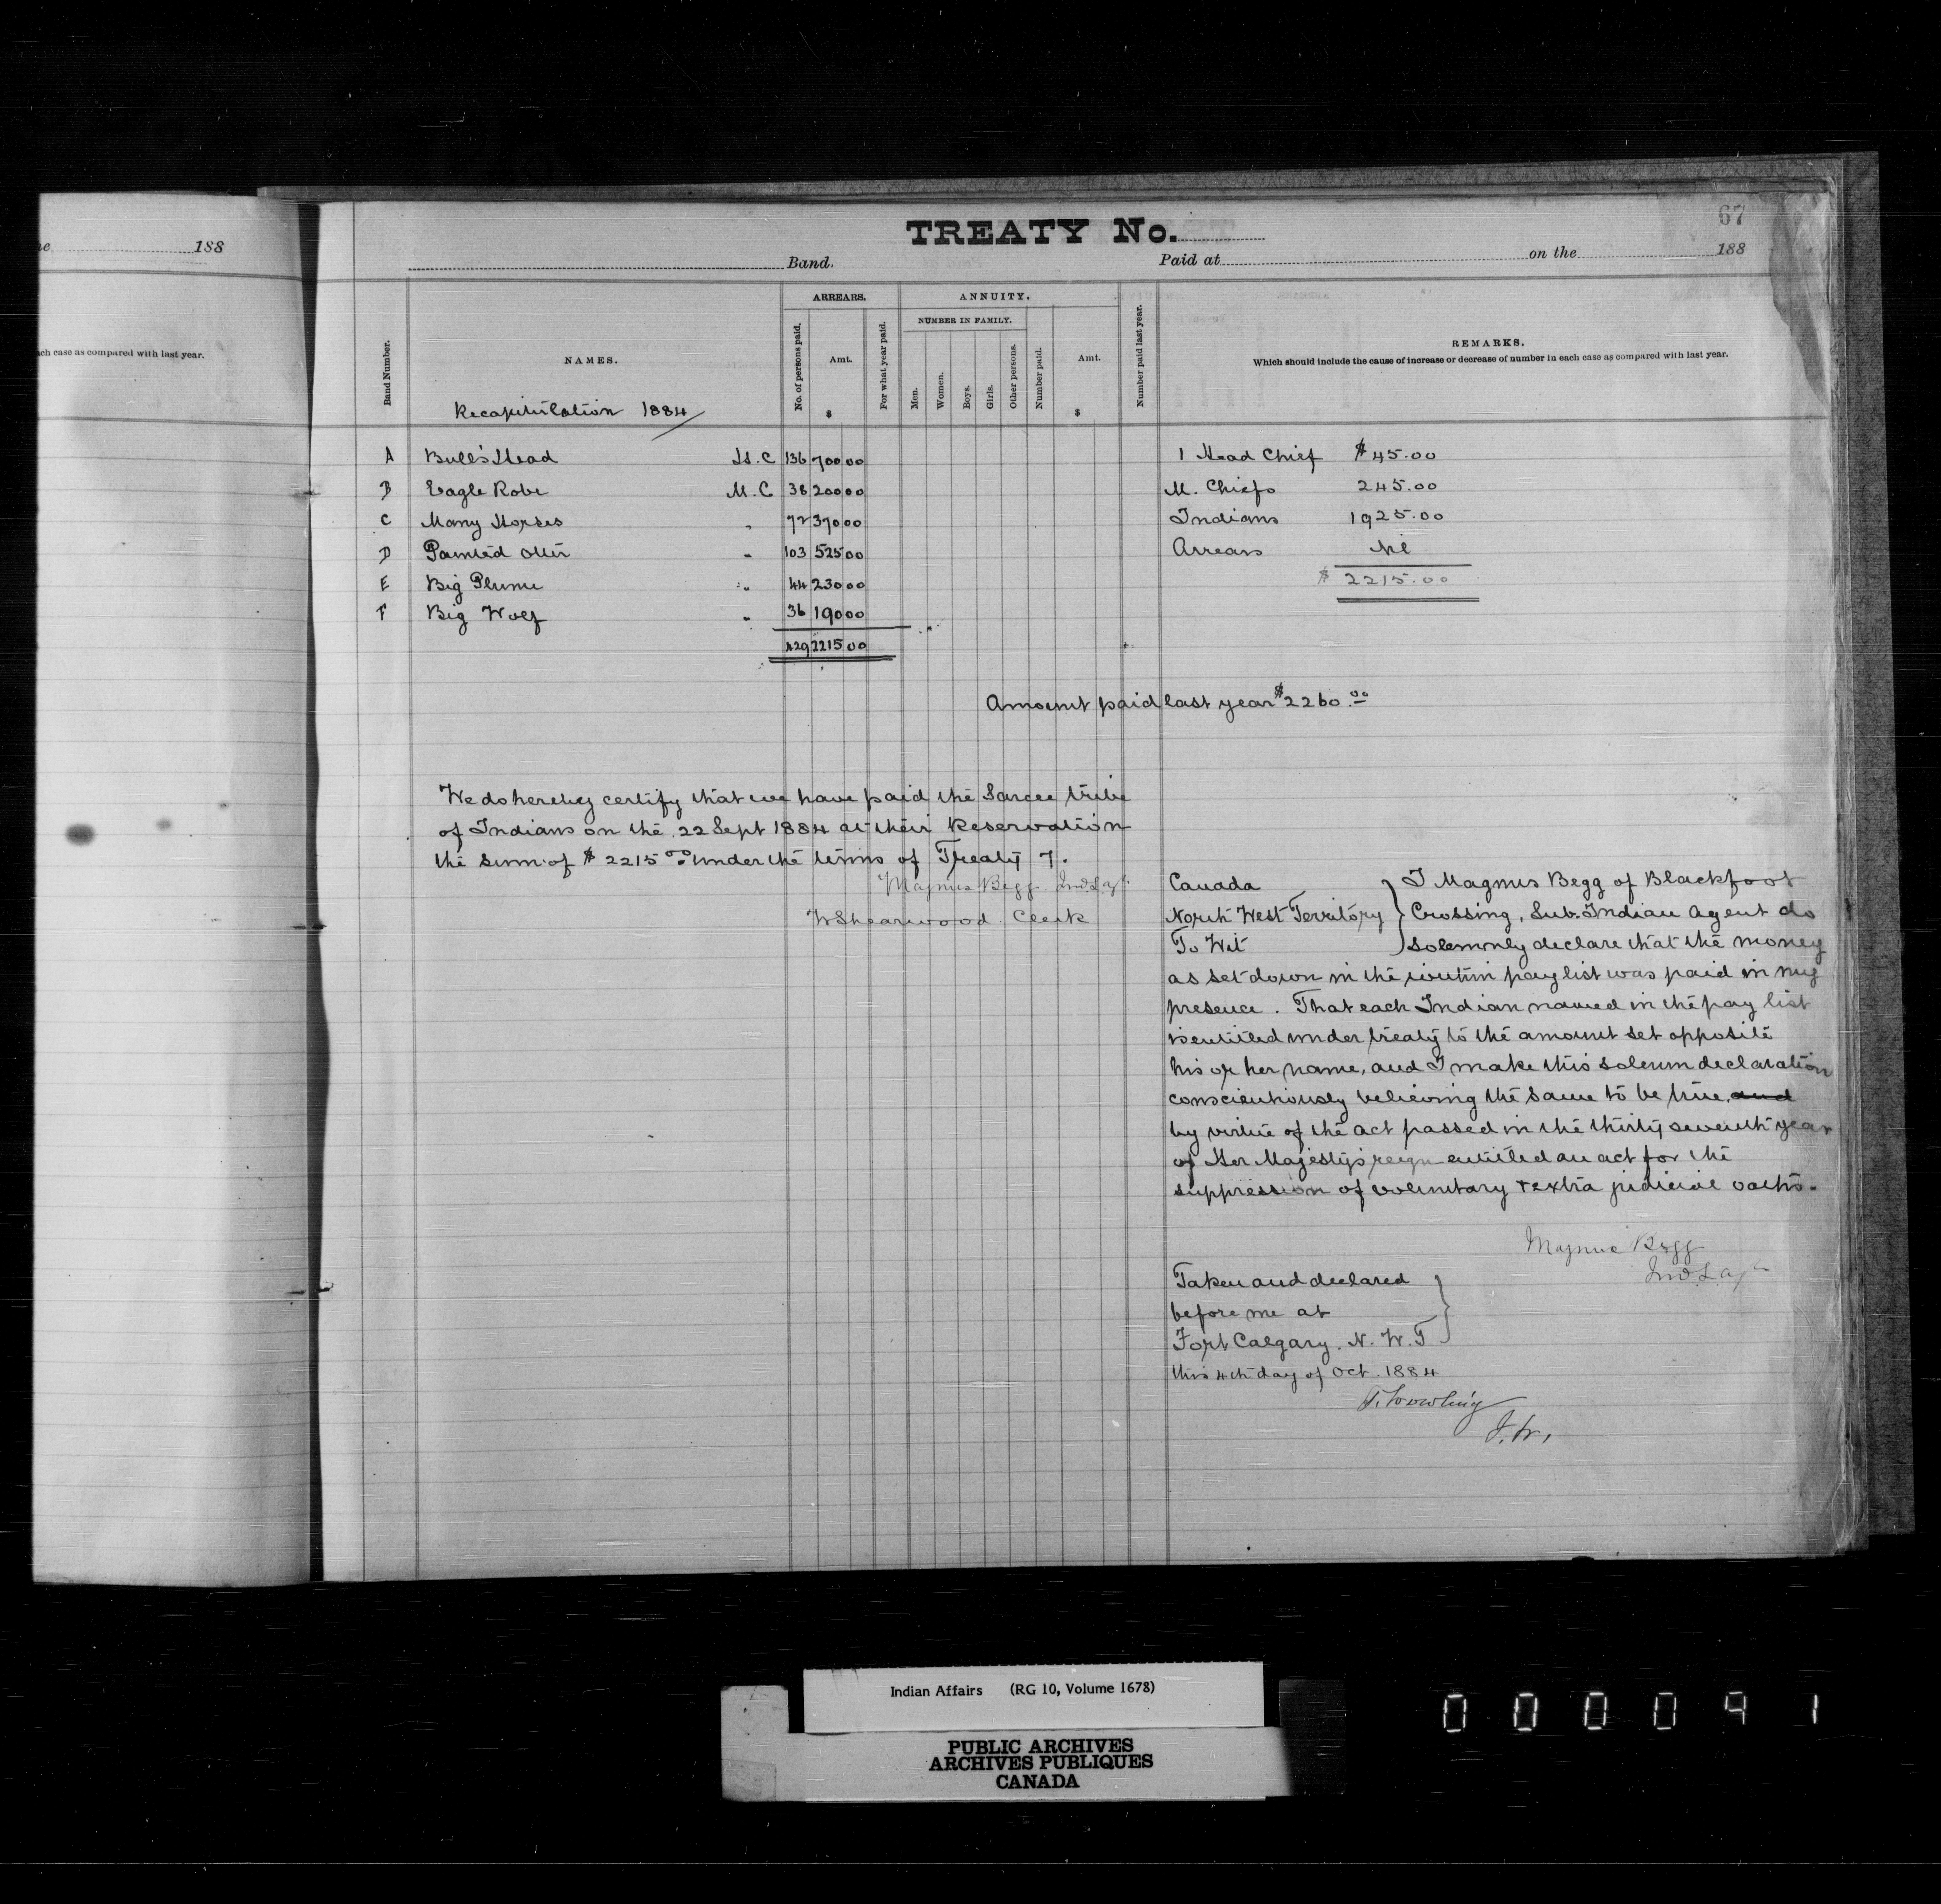 ne 188
ach case as compared with last year.
67
TREATY No.
Band. Paid at on the 188
Band Number.
NAMES.
Recapitulation 1884
ARREARS.
No. of persons paid.
Amt.
$
For what year paid.
ANNUITY.
NUMBER IN FAMILY.
Men.
Women.
Boys.
Girls.
Other persons.
Number paid.
Amt.
$
Number paid last year.
REMARKS.
Which should include the cause of increase or decrease of number in each case as compared with last year.
A Bull's Head H.C 136 700 00
B Eagle Robe M.C 38 200 00
C Many Horses " 72 370 00
D Painted Otter " 103 525 00
E Big Plume " 44 230 00
F Big Wolf " 36 190 00
429 2215 00
1 Head Chief $45.00
M. Chiefs 245.00
Indians 1925.00
Arrears Nil
$ 2215.00
Amount paid last year $2260.00
We do hereby certify that we have paid the Sarcee tribe
of Indians on the 22 Sept 1884 at their Reservation
the sum of $ 2215.00 under the terms of Treaty 7.
Magnus Begg Ind. S. Agt.
W Shearwood Clerk
Canada
North West Territory
To Wit
I Magnus Begg of Blackfoot
Crossing, Sub. Indian Agent do
solemnly declare that the money
as set down in the within pay list was paid in my
presence. That each Indian named in the pay list
is entitled under treaty to the amount set opposite
his or her name, and I make this solemn declaration
conscientiously believing the same to be true, and
by virtue of the act passed in the thirty seventh year
of Her Majesty's reign entitled an act for the
suppression of voluntary & extra judicial oaths.
Magnus Begg
Ind. S. Agt
Taken and declared
before me at
Fort Calgary. N. W. T
this 4th day of Oct. 1884
Indian Affairs (RG 10, Volume 1678)
PUBLIC ARCHIVES
ARCHIVES PUBLIQUES
CANADA
000091